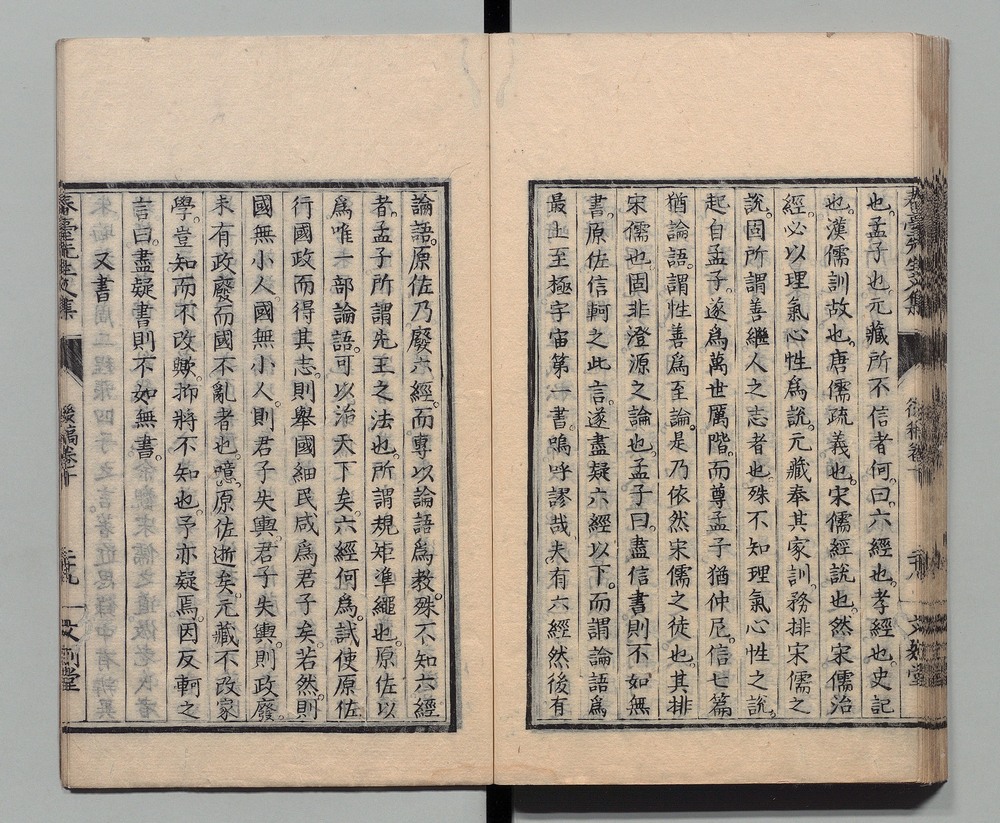 也。孟子也。元藏所不信者何。曰。六經也。孝經也。史記
也。漢儒訓故也。唐儒疏義也。宋儒經說也。然宋儒治
經。必以理氣心性爲說。元藏奉其家訓。務排宋儒之
說。固所謂善繼人之志者也。殊不知理氣心性之說。
起自孟子。遂爲萬世厲階。而尊孟子猶仲尼。信七篇
猶論語。謂性善爲至論。是乃依然宋儒之徒也。其排
宋儒也。固非澄源之論也。孟子曰。盡信書則不如無
書。原佐信軻之此言。遂盡疑六經以下。而謂論語爲
最上至極宇宙第一書。嗚呼謬哉。夫有六經然後有
論語。原佐乃廢六經。而專以論語爲教。殊不知六經
者。孟子所謂先王之法也。所謂規矩準繩也。原佐以
爲唯一部論語。可以治天下矣。六經何爲。試使原佐
行國政而得其志。則舉國細民咸爲君子矣。若然。則
國無小人。國無小人。則君子失輿。君子失輿。則政廢。
未有政廢而國不亂者也。噫。原佐逝矣。元藏不改家
學。豈知而不改歟。抑將不知也。予亦疑焉。因反軻之
言曰。盡疑書則不如無書。
又書
春臺先生文集
後稿卷十
二十九